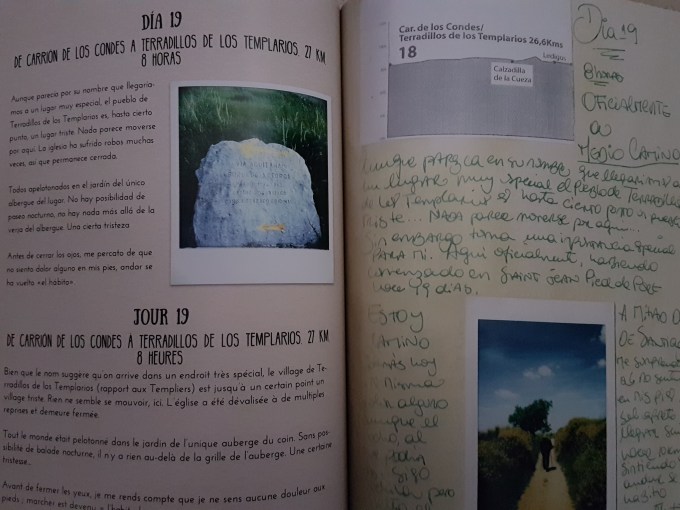 DÍA 19
DE CARRIÓN DE LOS CONDES A TERRADILLOS DE LOS TEMPLARIOS. 27 KM
8 HORAS
Aunque parecía por su nombre que llegaría-
mos a un lugar muy especial, el pueblo de
Terradillos de los Templarios es, hasta cierto
punto, un lugar triste. Nada parece moverse
por aquí. La iglesia ha sufrido robos muchas
veces, así que permanece cerrada.
Todos apelotonados en el jardín del único
albergue del lugar. No hay posibilidad de
paseo nocturno, no hay nada más allá de la
verja del albergue. Una cierta tristeza
Antes de cerrar los ojos, me percato de que
no siento dolor alguno en mis pies, andar se
ha vuelto «el hábito».
JOUR 19
DE CARRIÓN DE LOS CONDES A TERRADILLOS DE LOS TEMPLARIOS. 27 KM
8 HEURES
Bien que le nom suggère qu'on arrive dans un endroit très spécial, le village de Te-
rradillos de los Templarios (rapport aux Templiers) est jusqu'à un certain point un
village triste. Rien ne semble se mouvoir, ici. L'église a été dévalisée à de multiples
reprises et demeure fermée.
Tout le monde était pelotonné dans le jardin de l'unique auberge du coin. Sans pos-
sibilité de balade nocturne, il n'y a rien au-delà de la grille de l'auberge. Une certaine
tristesse...
Avant de fermer les yeux, je me rends compte que je ne sens aucune douleur aux
pieds ; marcher est devenu
Car. de los Condes/
Terradillos de los Templarios 26,6Kms
18
Ledigos
Calzadilla
de la Cueza
Día 19
8 horas
OFICIALMENTE
MEDIO CAMINO
Aunque parezca en su nombre que
un lugar muy especial el pueblo de
de los Templarios es hasta cierto punto un
triste... Nada parece moverse por aquí...
Sin embargo toma una importancia especial
para mí. Aquí oficialmente, habiendo
comenzado en Saint Jean Pied de Port
hace 19 días.
ESTOY
CAMINO
hoy
alguno
el
al
SIGO
pero
A MITAD D
DE SANTIA
en mis pie